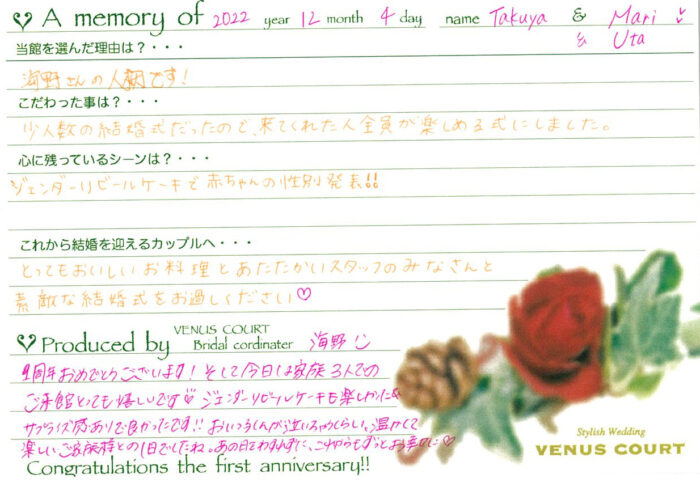 A memory of 2022 year 12 month 4 day name Takuya & Mari
& Uta
当館を選んだ理由は？・・・
海野さんの人柄です！
こだわった事は？・・・
少人数の結婚式だったので、来てくれた人全員が楽しめる式にしました。
心に残っているシーンは？・・・
ジェンダーリビールケーキで赤ちゃんの性別発表!!
これから結婚を迎えるカップルへ・・・
とってもおいしいお料理とあたたかいスタッフのみなさんと
素敵な結婚式をお過しください♡
Produced by VENUS COURT
Bridal cordinater 海野
1周年おめでとうございます！そして今日は家族3人での
ご来館とても嬉しいです♡ジェンダーリビールケーキも楽しかったね
サプライズ感ありで良かったです!! 温かくて
楽しいご家族様との1日でしたね。あの日をわすれずに、これからもずっとお幸せに♡
Congratulations the first anniversary!!
Stylish Wedding
VENUS COURT